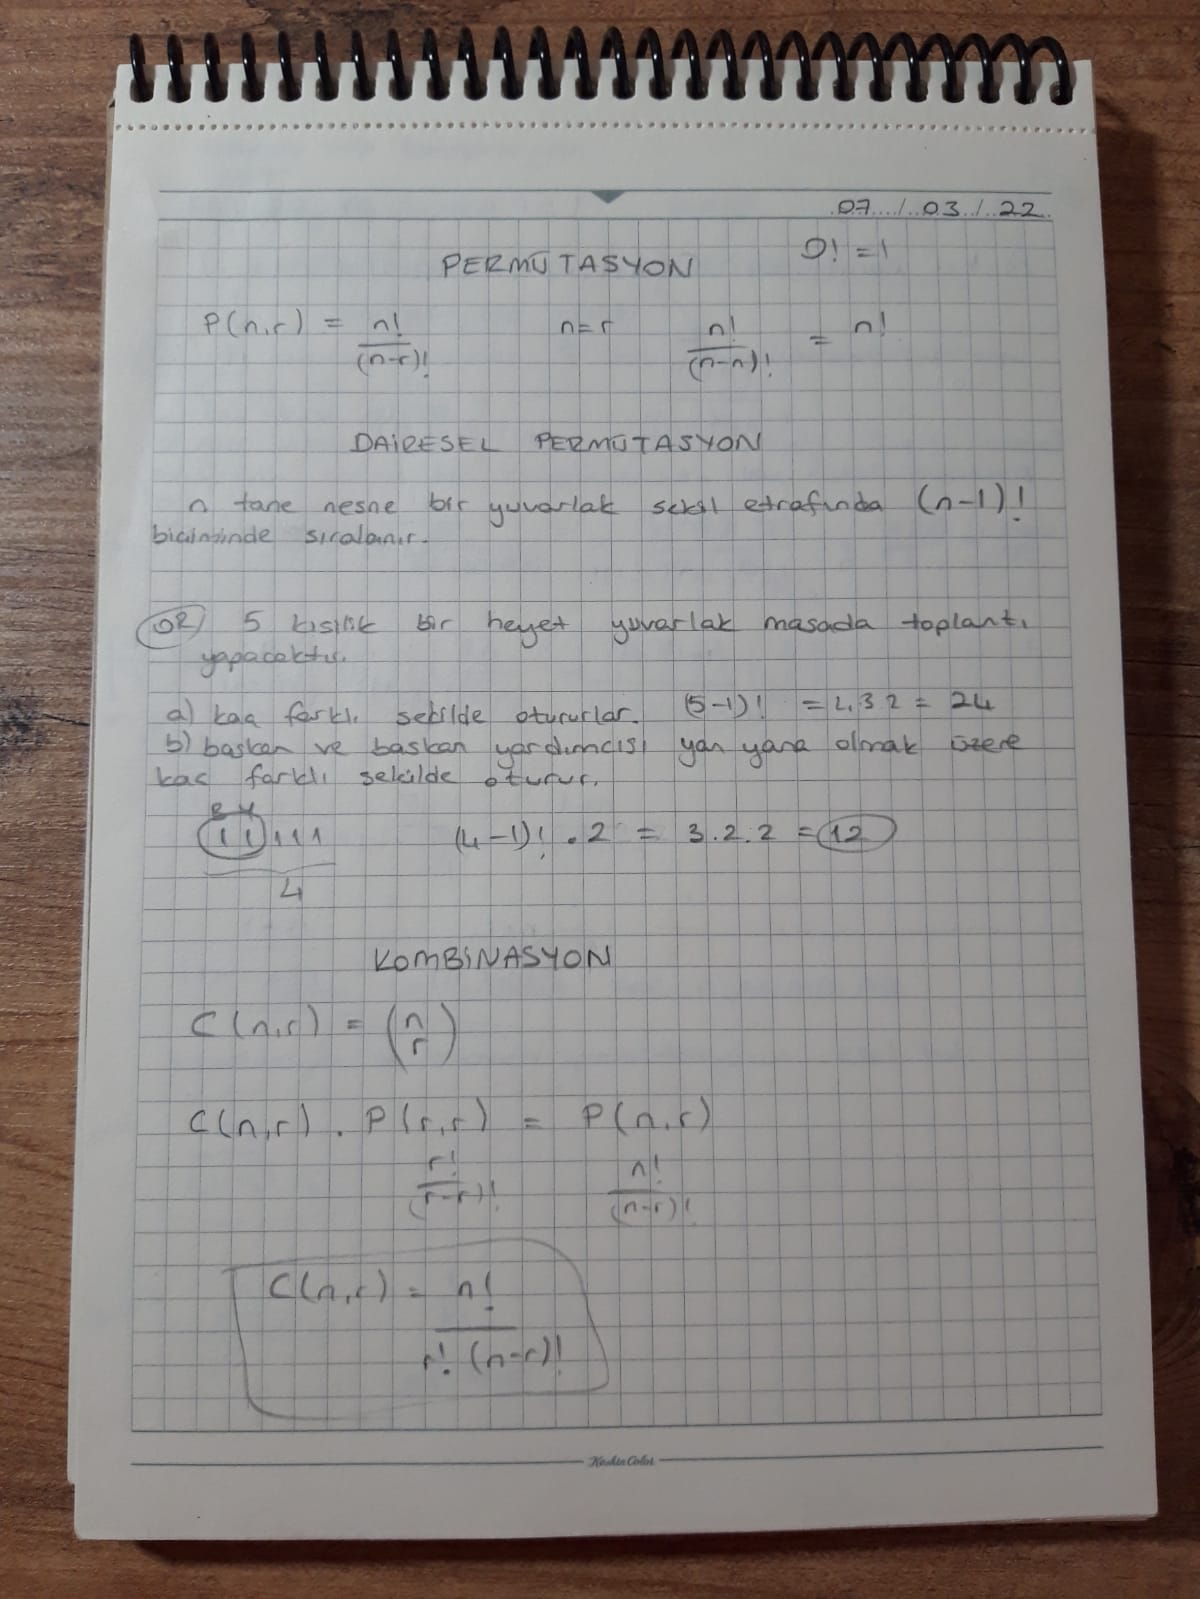 07 / 03 / 22
PERMÜTASYON 0! = 1
P(n,r) = n!/(n-r)! n=r n!/(n-n)! = n!
DAİRESEL PERMÜTASYON
n tane nesne bir yuvarlak sekil etrafında (n-1)!
biciminde sıralanır.
ÖR) 5 kisilik bir heyet yuvarlak masada toplantı
yapacaktır.
a) kaç farklı sekilde otururlar. (5-1)! = 4.3 2 = 24
b) baskan ve baskan yardımcısı yan yana olmak üzere
kac farklı sekilde oturur.
B Y
1 1 1 1 1 (4-1)! . 2 = 3.2.2 = 12
4
KOMBİNASYON
C(n,r) = (n r)
C(n,r) . P(r,r) = P(n,r)
r!/(r-r)! n!/(n-r)!
C(n,r) = n!
r! (n-r)!
Keskin Color